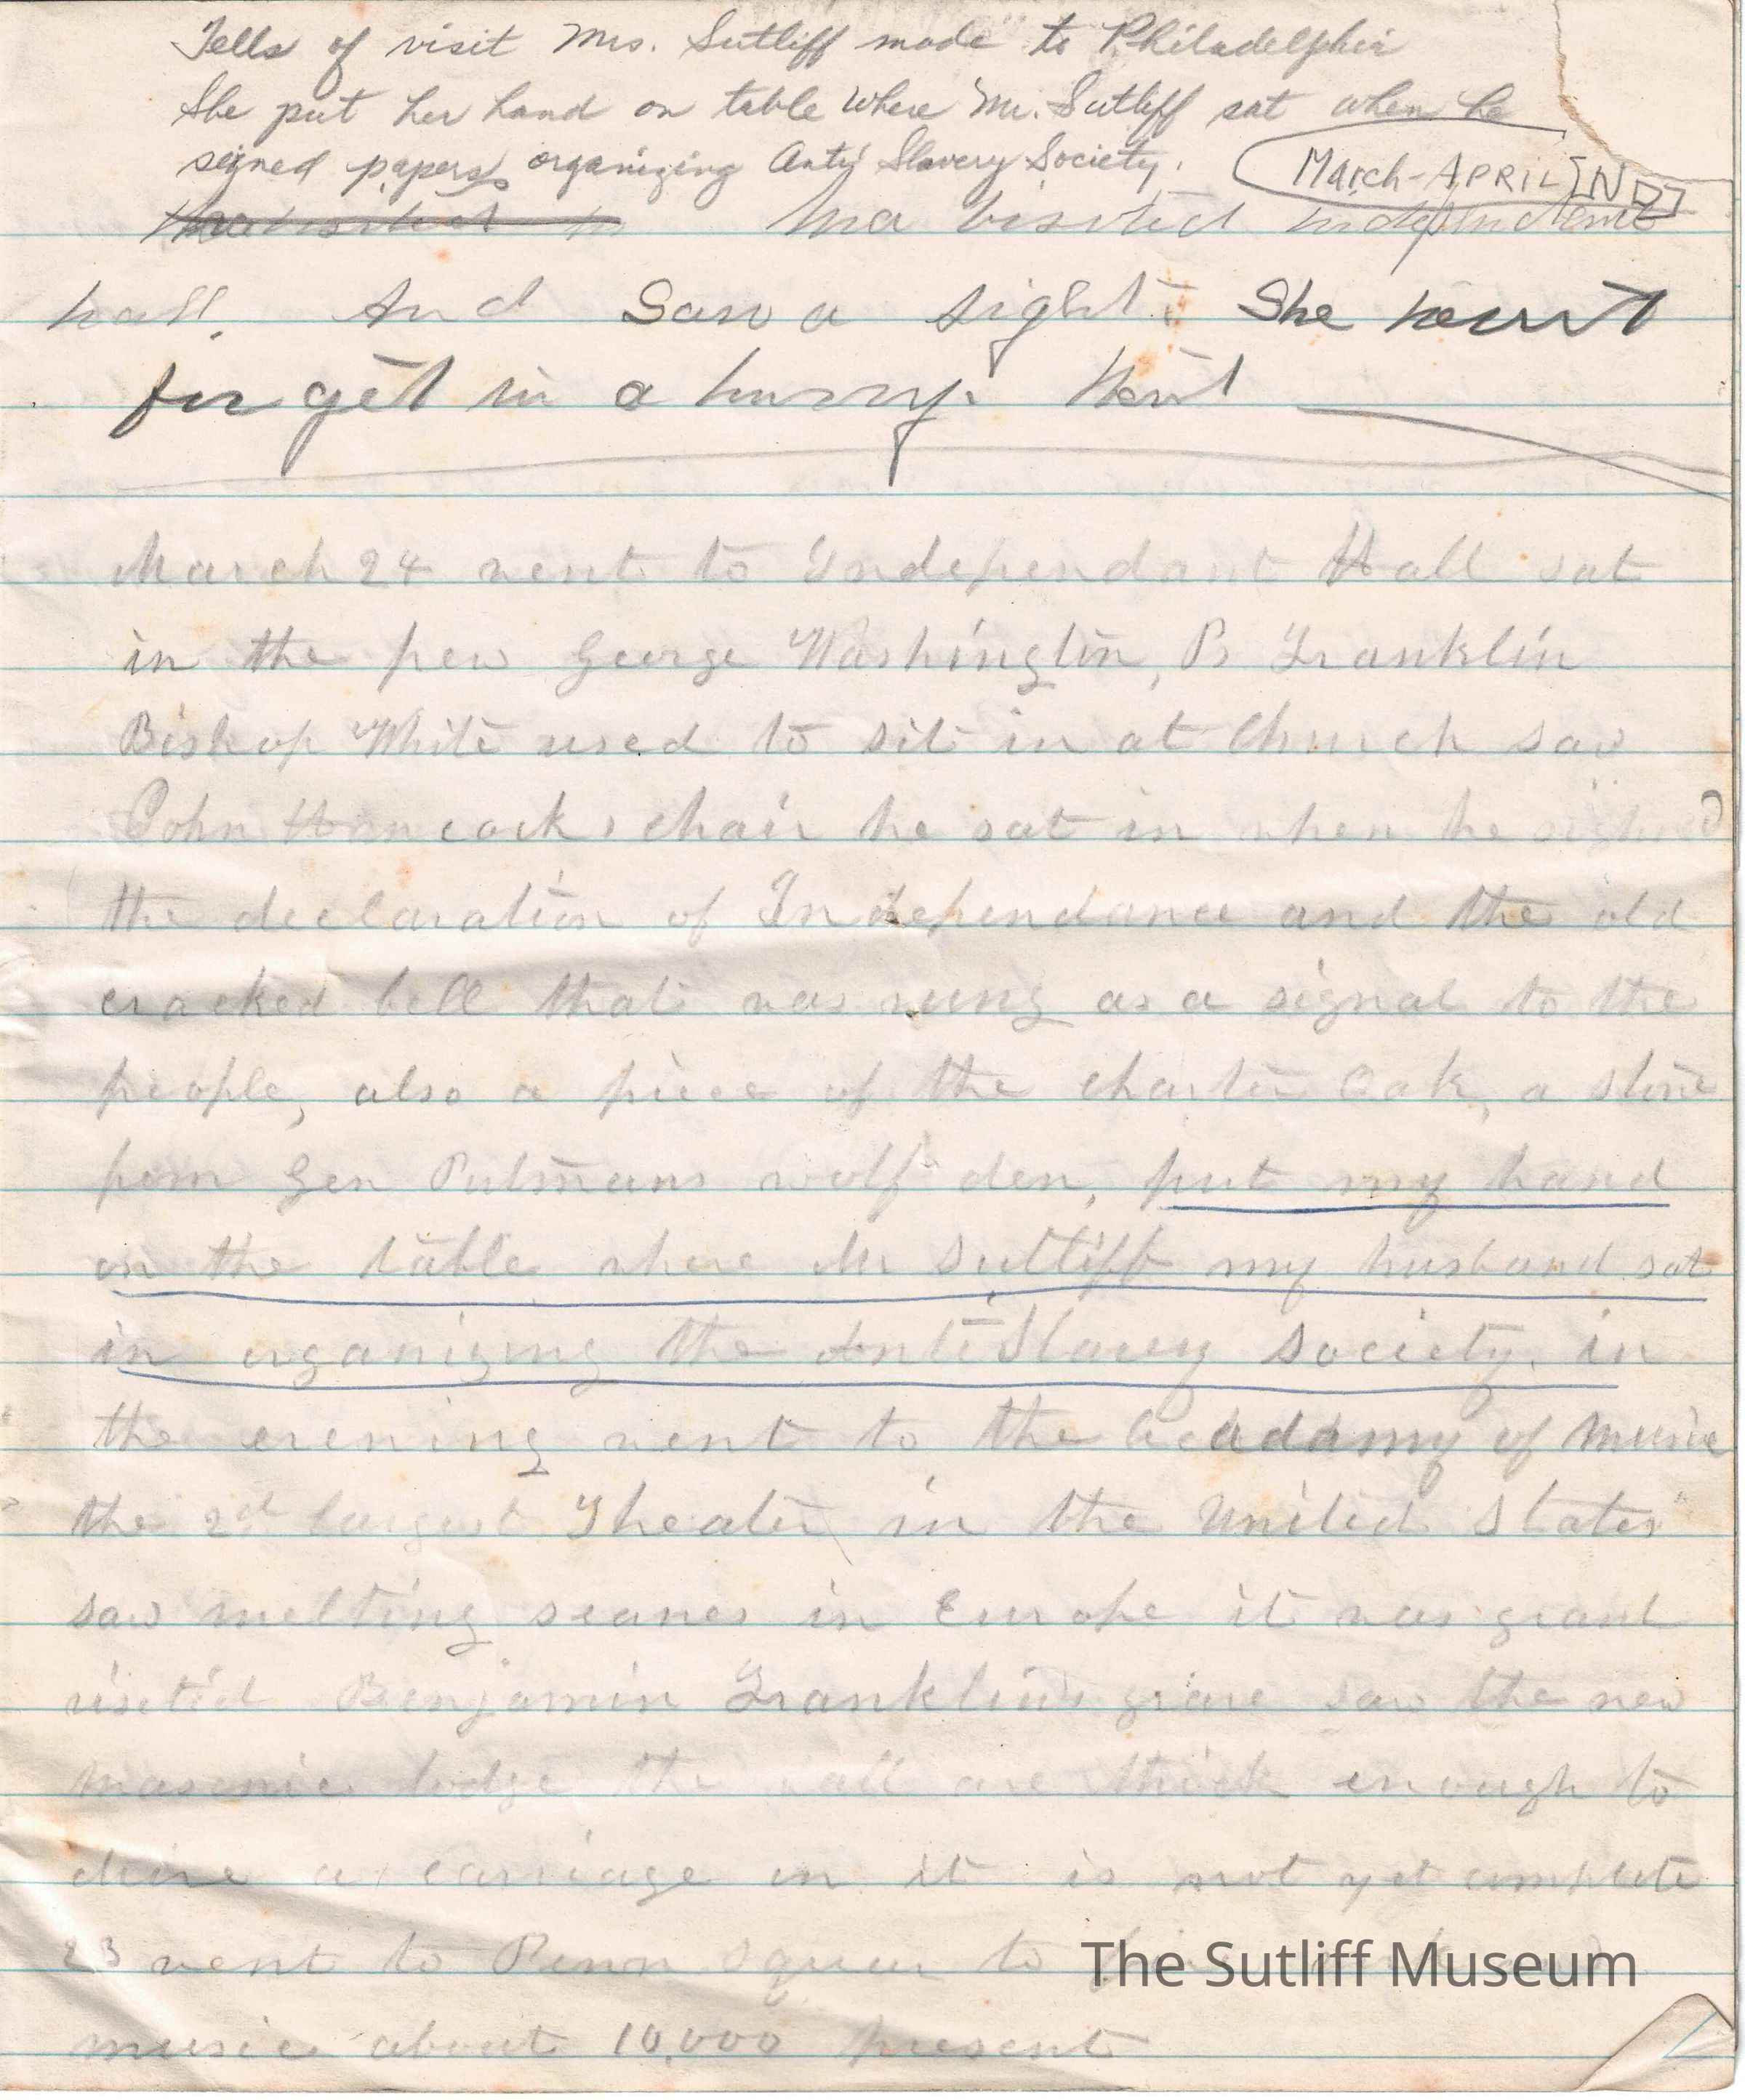 Tells of visit Mrs. Sutliff made to Philadelphia
She put her hand on table where Mr. Sutliff sat when he
signed papers organizing Anti Slavery Society.
March-APRIL
Ma visited independent
hall. And Saw a sight. She wount
forget in a hurry.
March 24 went to Independant Hall sat
in the pew George Washington, B Franklin
Bishop White used to sit in at Church saw
John Hancocks chair he sat in when he signed
the declaration of Independance and the old
cracked bell that was rung as a signal to the
people, also a piece of the charter Oak, a stone
from Gen Putmans wolf den, put my hand
on the table where Mr Sutliff my husband sat
in organizing the AntiSlavery Society. in
the evening went to the Acadamy of Music
the 2d largest Theater in the United States
saw melting seanes in Europe it was grand
visited Benjamin Franklins grave saw the new
masonic lodge the wall are thick enough to
drive a carriage in it is not yet complete
23 went to Penn Squeer to
The Sutliff Museum
music about 10,000 present